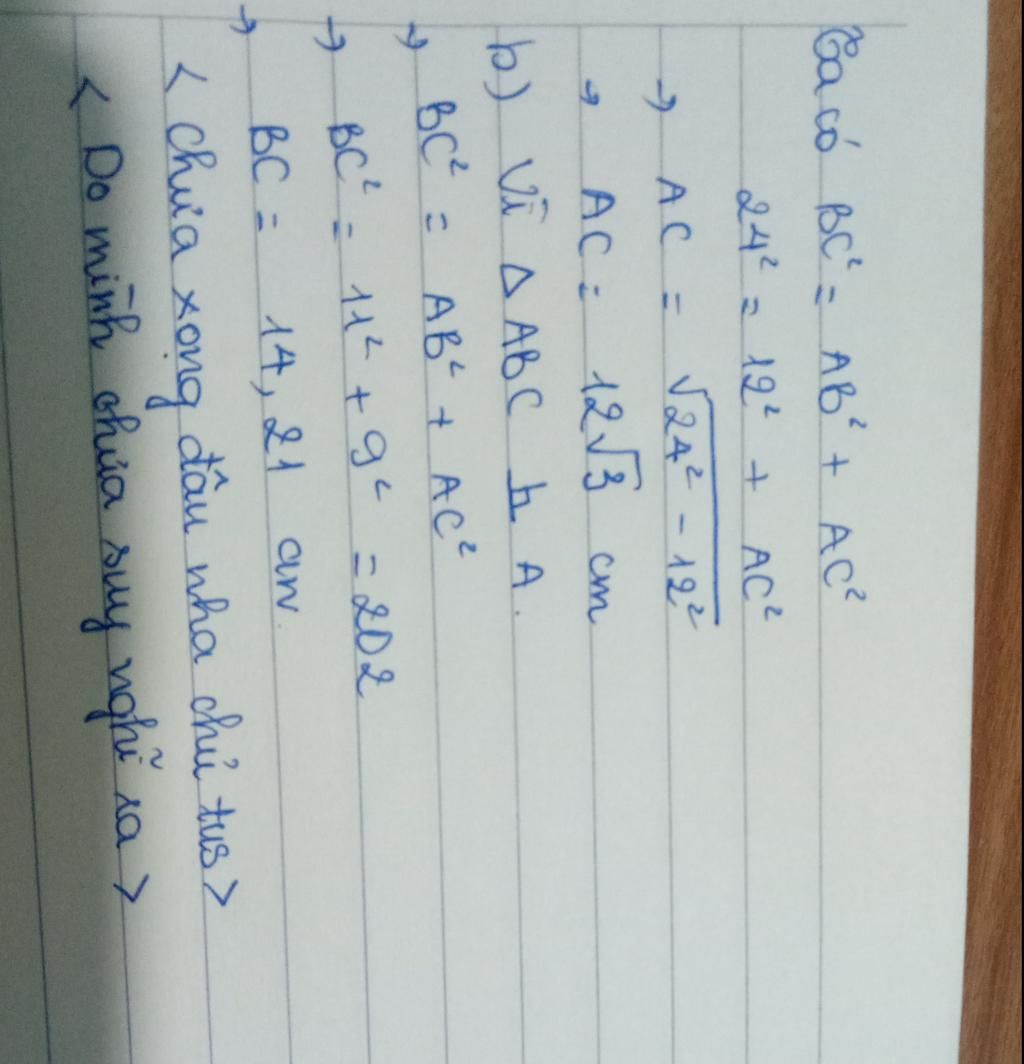 Ta có BC² = AB² + AC²
24² = 12² + AC²
→ AC = √24² - 12²
→ AC = 12√3 cm
b) Vì Δ ABC h A.
→ BC² = AB² + AC²
→ BC² = 11² + 9² = 202
→ BC = 14,21 cm.
< Chưa xong đâu nha chủ tus >
< Do mình chưa suy nghĩ ra >